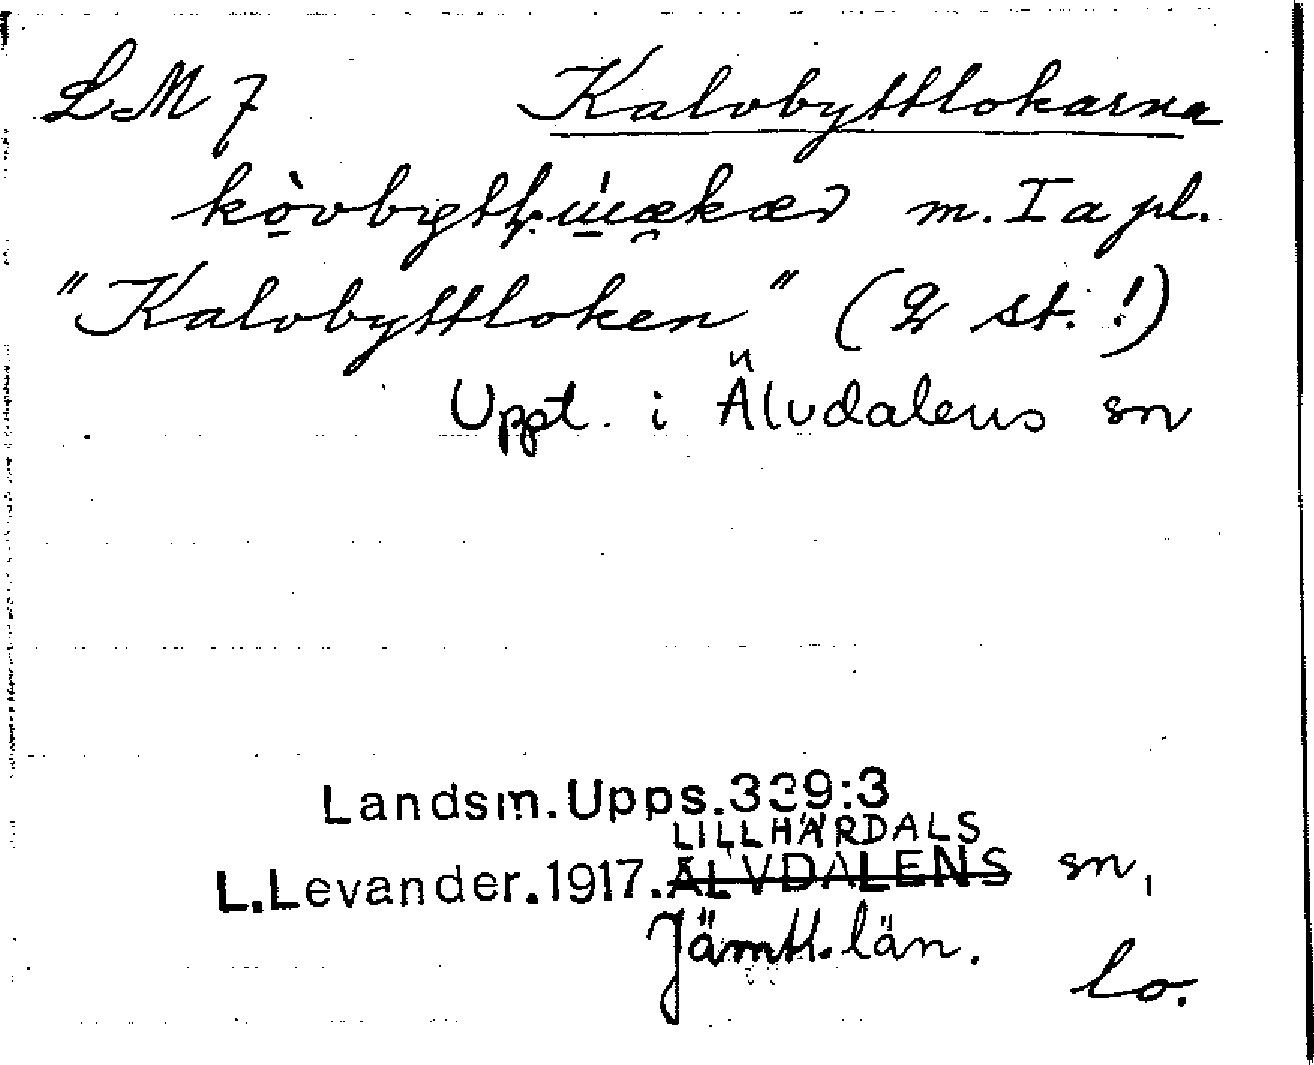 LM 7 Kalvbyttlokarna
m. I a pl.
"Kalvbyttloken" (2 st.!)
Uppt. i Älvdalens sn
Landsm.Upps.339:3
LILLHÄRDALS
L.Levander.1917.ÄLVDALENS sn,
Jämtl. län.
lo.